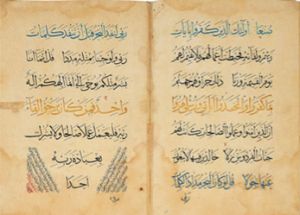 صنعا أولئك الذين كفروا بآيات
ربهم ولقائه فحبطت أعمالهم فلا نقيم لهم
يوم القيامة وزنا ذلك جزاؤهم جهنم
بما كفروا واتخذوا آياتي ورسلي هزوا
إن الذين آمنوا وعملوا الصالحات كانت لهم
جنات الفردوس نزلا خالدين فيها لا يبغون
عنها حولا قل لو كان البحر مدادا لكلمات
ربي لنفد البحر قبل أن تنفد كلمات
ربي ولو جئنا بمثله مددا قل إنما أنا
بشر مثلكم يوحى إلي أنما إلهكم إله
واحد فمن كان يرجو لقاء
ربه فليعمل عملا صالحا ولا يشرك
بعبادة ربه
أحدا